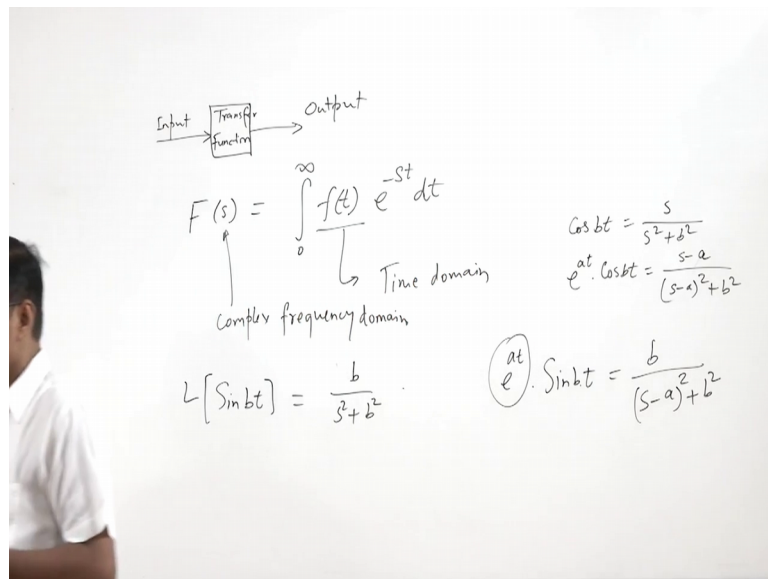 Input
Transfer
function
Output
F(s) = ∫₀^∞ f(t) e^{-st} dt
Time domain
Complex frequency domain
Cos bt = s / (s² + b²)
e^{at} . Cos bt = (s-a) / ((s-a)² + b²)
L[Sin bt] = b / (s² + b²)
e^{at} . Sin b.t = b / ((s-a)² + b²)